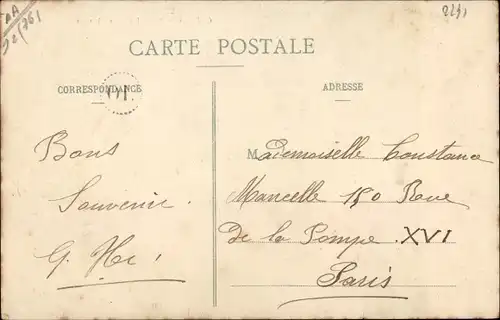 CARTE POSTALE
CORRESPONDANCE
ADRESSE
Bons
Souvenir.
G. He,
Mademoiselle Constance
Marcelle 150 Rue
De la Pompe. XVI
Paris